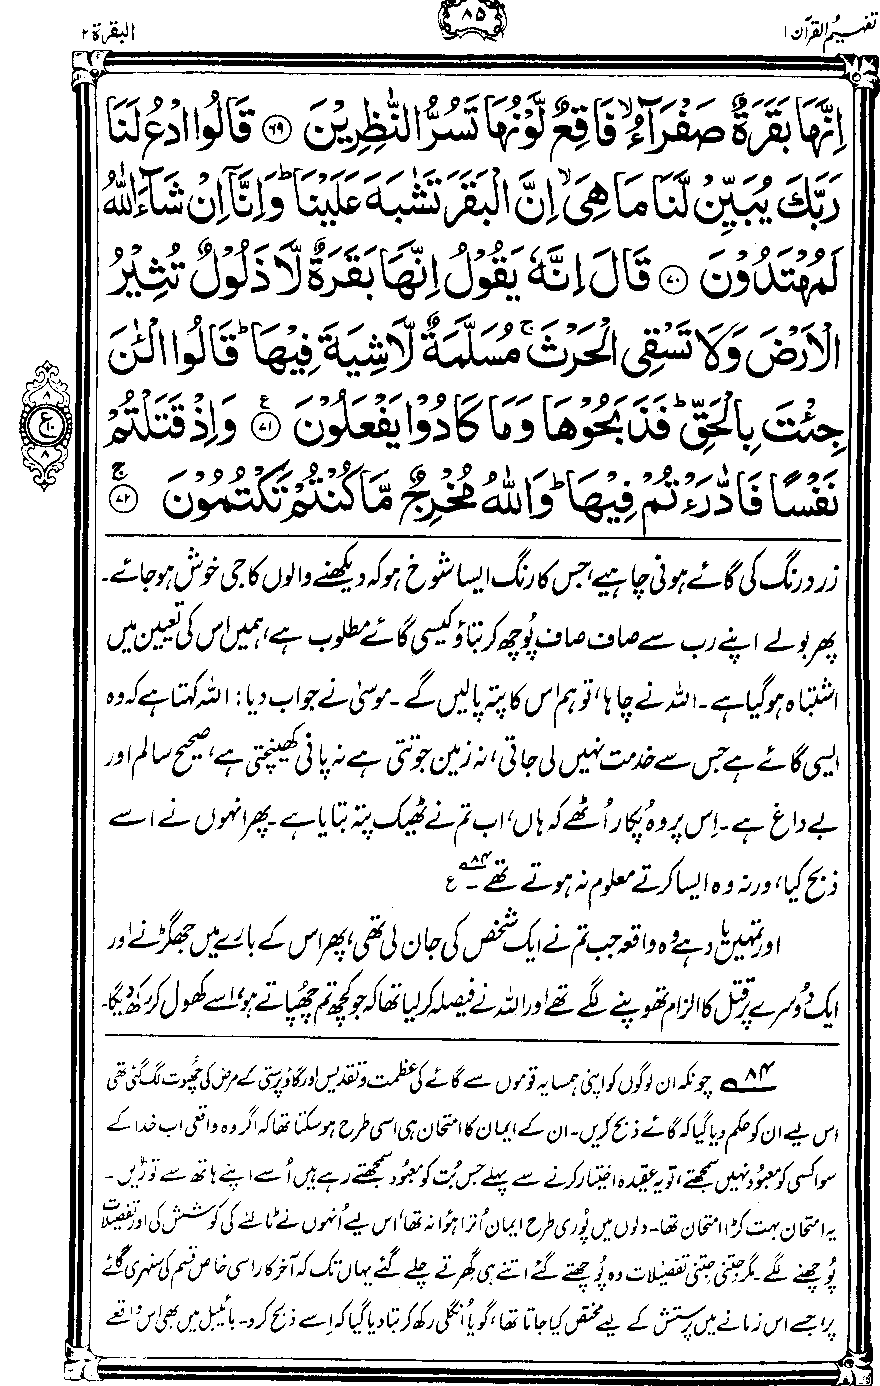 تفہیم القرآن ۱
۸۵
البقرۃ ۲
اِنَّهَا بَقَرَةٌ صَفْرَآءُ ۙ فَاقِعٌ لَّوْنُهَا تَسُرُّ النّٰظِرِيْنَ ﴿۶۹﴾ قَالُوا ادْعُ لَنَا
رَبَّكَ يُبَيِّنْ لَّنَا مَا هِىَ ۙ اِنَّ الْبَقَرَ تَشٰبَهَ عَلَيْنَا ؕ وَاِنَّاۤ اِنْ شَآءَ اللّٰهُ
لَمُهْتَدُوْنَ ﴿۷۰﴾ قَالَ اِنَّهٗ يَقُوْلُ اِنَّهَا بَقَرَةٌ لَّا ذَلُوْلٌ تُثِيْرُ
الْاَرْضَ وَلَا تَسْقِى الْحَرْثَ ۚ مُسَلَّمَةٌ لَّا شِيَةَ فِيْهَا ؕ قَالُوا الْـٰٔنَ
جِئْتَ بِالْحَقِّ ؕ فَذَبَحُوْهَا وَمَا كَادُوْا يَفْعَلُوْنَ ﴿۷۱﴾ ع وَاِذْ قَتَلْتُمْ
نَفْسًا فَادّٰرَءْتُمْ فِيْهَا ؕ وَاللّٰهُ مُخْرِجٌ مَّا كُنْتُمْ تَكْتُمُوْنَ ﴿۷۲﴾ ج
۸
ع ۱۰
۸
زرد رنگ کی گائے ہونی چاہیے، جس کا رنگ ایسا شوخ ہو کہ دیکھنے والوں کا جی خوش ہو جائے۔
پھر بولے اپنے رب سے صاف صاف پُوچھ کر بتاؤ کیسی گائے مطلوب ہے، ہمیں اس کی تعیین میں
اشتباہ ہو گیا ہے۔ اللہ نے چاہا، تو ہم اس کا پتہ پالیں گے۔ موسیٰ نے جواب دیا: اللہ کہتا ہے کہ وہ
ایسی گائے ہے جس سے خدمت نہیں لی جاتی، نہ زمین جوتتی ہے نہ پانی کھینچتی ہے، صحیح سالم اور
بے داغ ہے۔ اِس پر وہ پُکار اُٹھے کہ ہاں، اب تم نے ٹھیک پتہ بتایا ہے۔ پھر انہوں نے اسے
ذبح کیا، ورنہ وہ ایسا کرتے معلوم نہ ہوتے تھے۔ ۸۴ ع
اور تمہیں یاد ہے وہ واقعہ جب تم نے ایک شخص کی جان لی تھی، پھر اس کے بارے میں جھگڑنے اور
ایک دُوسرے پر قتل کا الزام تھوپنے لگے تھے اور اللہ نے فیصلہ کر لیا تھا کہ جو کچھ تم چھُپاتے ہو، اسے کھول کر رکھ دیگا۔
۸۴ چونکہ ان لوگوں کو اپنی ہمسایہ قوموں سے گائے کی عظمت و تقدیس اور گاؤ پرستی کے مرض کی چھُوت لگ گئی تھی
اس لیے ان کو حکم دیا گیا کہ گائے ذبح کریں۔ ان کے ایمان کا امتحان ہی اسی طرح ہو سکتا تھا کہ اگر وہ واقعی اب خدا کے
سوا کسی کو معبُود نہیں سمجھتے، تو یہ عقیدہ اختیار کرنے سے پہلے جس بُت کو معبُود سمجھتے رہے ہیں اُسے اپنے ہاتھ سے توڑیں۔
یہ امتحان بہت کڑا امتحان تھا۔ دلوں میں پُوری طرح ایمان اُترا ہؤا نہ تھا، اس لیے اُنہوں نے ٹالنے کی کوشش کی اور تفصیلات
پُوچھنے لگے۔ مگر جتنی جتنی تفصیلات وہ پُوچھتے گئے اتنے ہی گھِرتے چلے گئے یہاں تک کہ آخر کار اسی خاص قسم کی سنہری گائے
پر، جسے اس زمانے میں پرستش کے لیے مختص کیا جاتا تھا، گویا اُنگلی رکھ کر بتا دیا گیا کہ اِسے ذبح کرو۔ بائیبل میں بھی اس واقعے